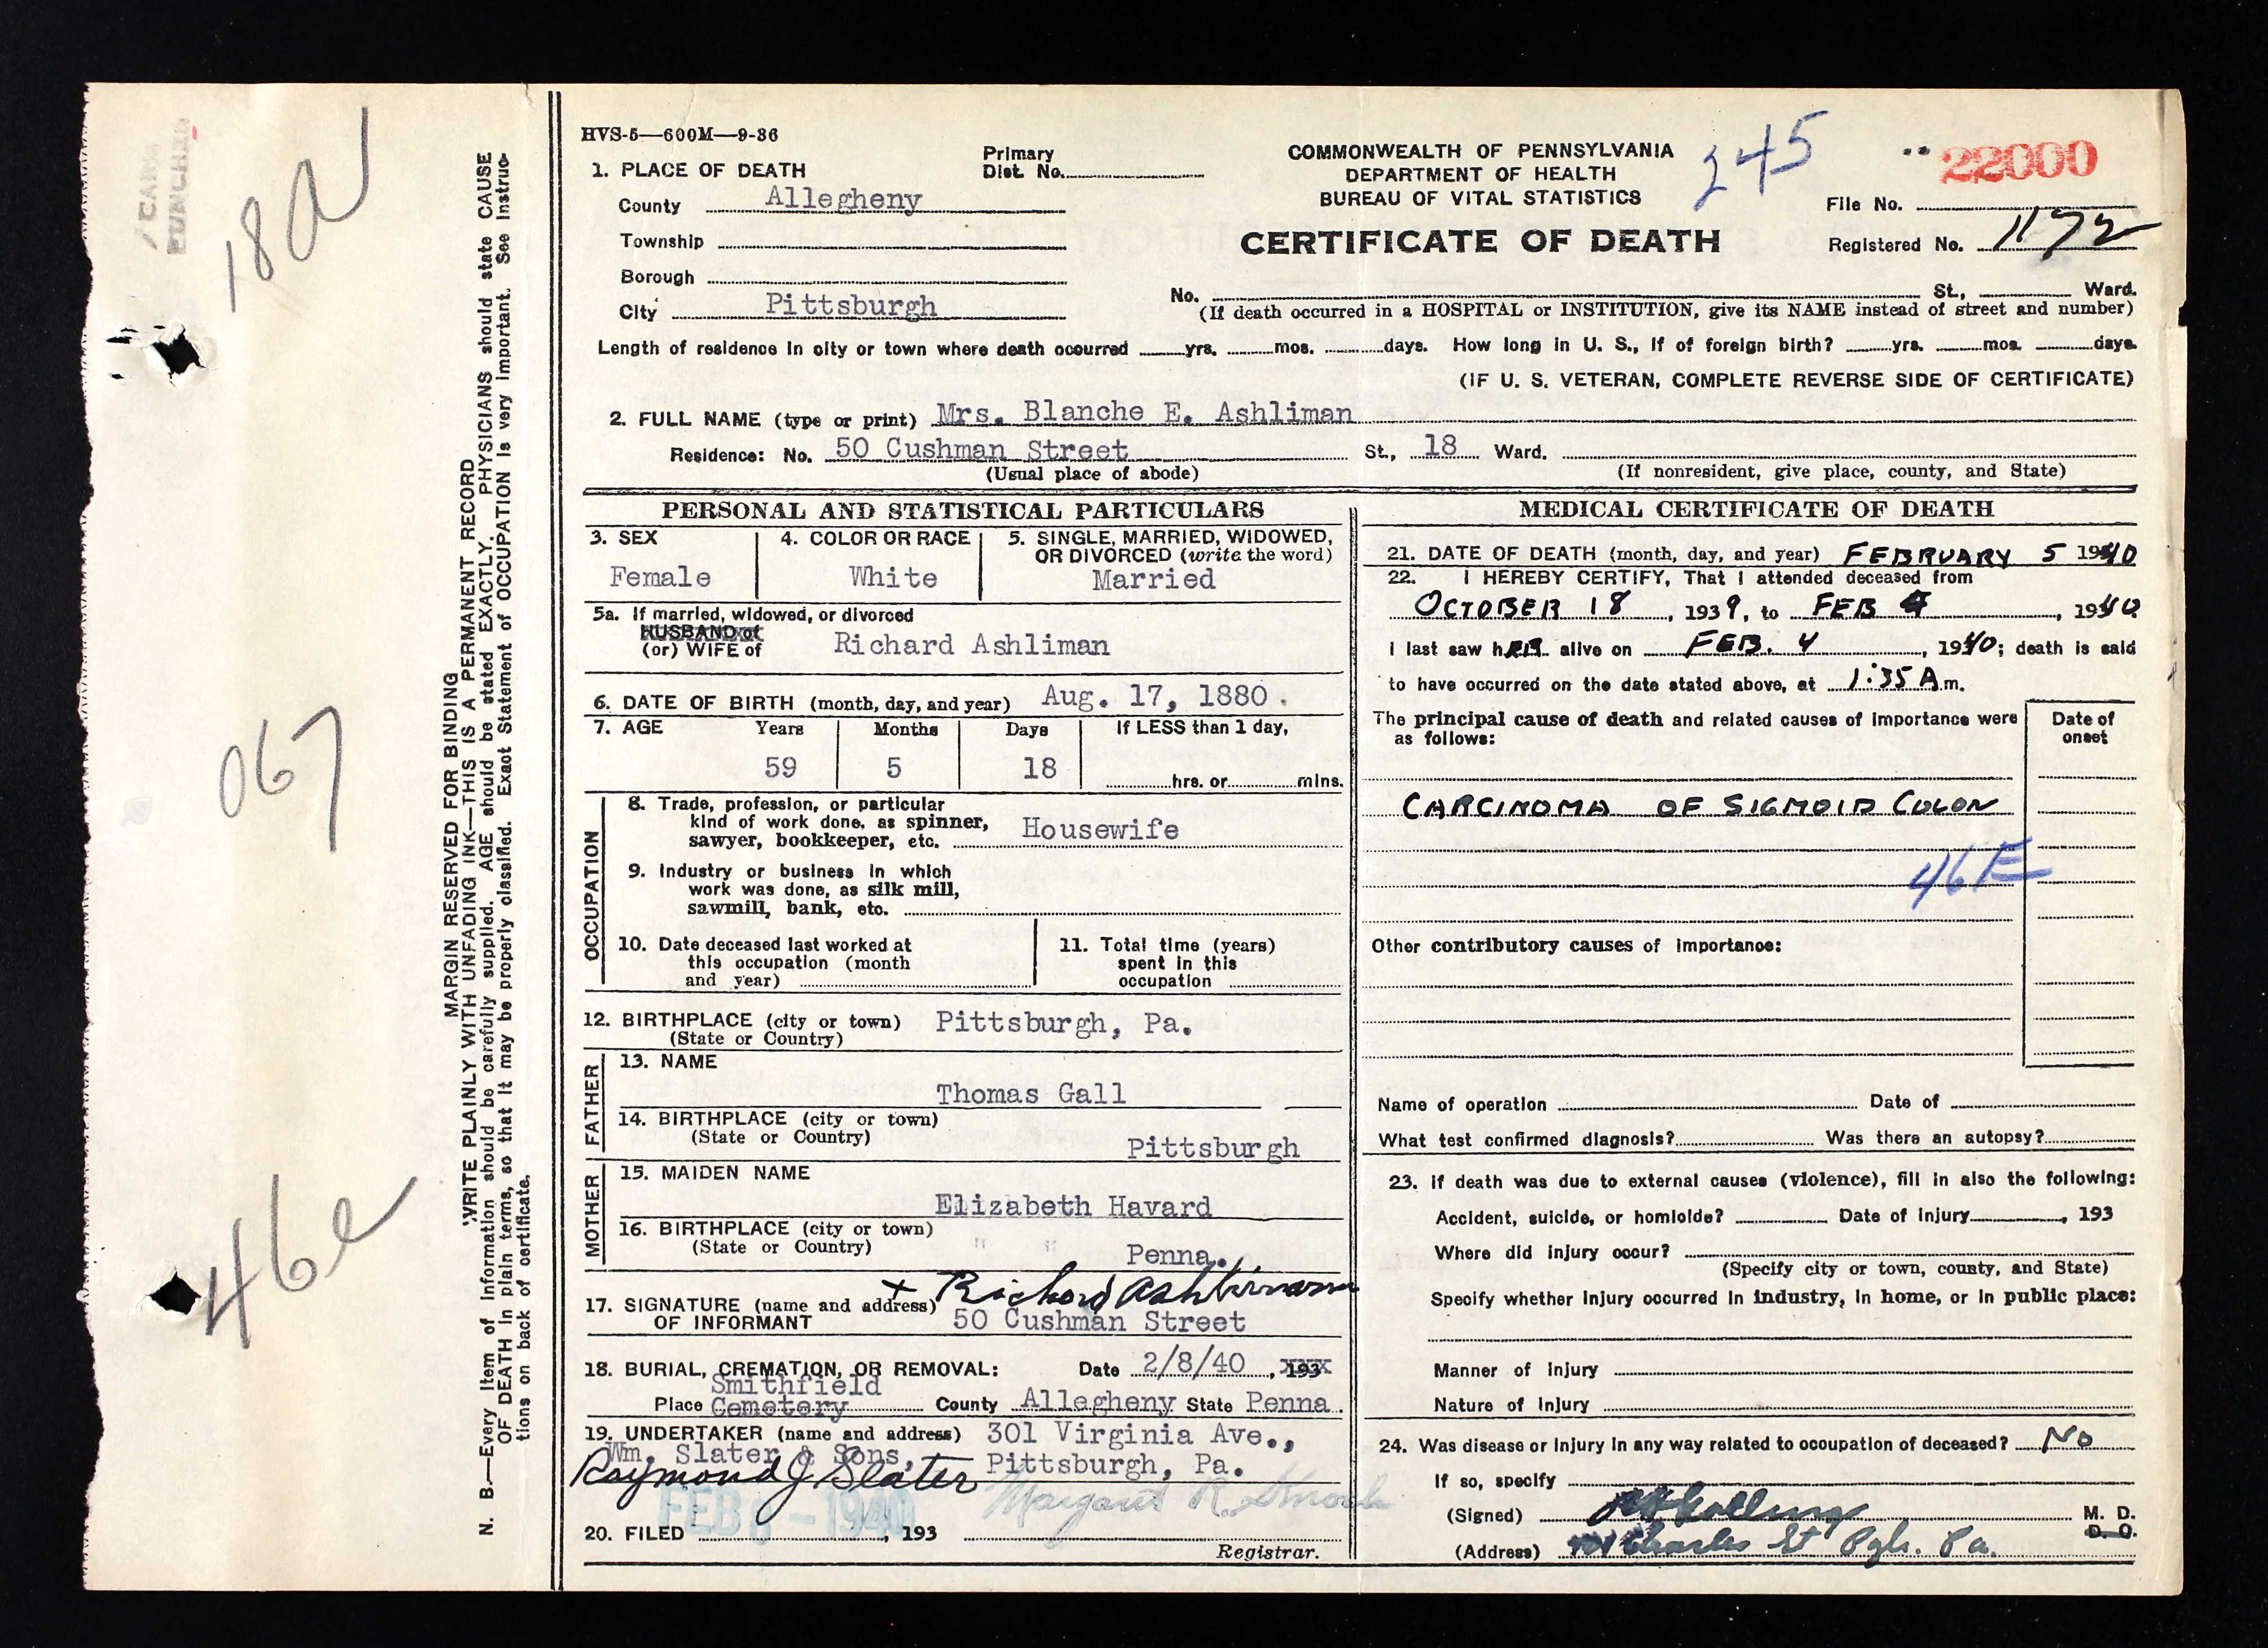 HVS-5—600M—9-36
1. PLACE OF DEATH
Primary
Dist. No.
County Allegheny
Township
Borough
City Pittsburgh
COMMONWEALTH OF PENNSYLVANIA
DEPARTMENT OF HEALTH
BUREAU OF VITAL STATISTICS
CERTIFICATE OF DEATH
245
22000
File No.
Registered No. 1172
No. St., Ward.
(If death occurred in a HOSPITAL or INSTITUTION, give its NAME instead of street and number)
Length of residence in city or town where death occurred yrs. mos. days. How long in U. S., if of foreign birth? yrs. mos. days.
(IF U. S. VETERAN, COMPLETE REVERSE SIDE OF CERTIFICATE)
2. FULL NAME (type or print) Mrs. Blanche E. Ashliman
Residence: No. 50 Cushman Street St., 18 Ward.
(Usual place of abode)
(If nonresident, give place, county, and State)
PERSONAL AND STATISTICAL PARTICULARS
3. SEX
Female
4. COLOR OR RACE
White
5. SINGLE, MARRIED, WIDOWED,
OR DIVORCED (write the word)
Married
5a. If married, widowed, or divorced
HUSBAND of
(or) WIFE of Richard Ashliman
6. DATE OF BIRTH (month, day, and year) Aug. 17, 1880.
7. AGE Years Months Days If LESS than 1 day,
59 5 18 hrs. or mins.
OCCUPATION
8. Trade, profession, or particular
kind of work done, as spinner,
sawyer, bookkeeper, etc. Housewife
9. Industry or business in which
work was done, as silk mill,
sawmill, bank, etc.
10. Date deceased last worked at
this occupation (month
and year)
11. Total time (years)
spent in this
occupation
12. BIRTHPLACE (city or town) Pittsburgh, Pa.
(State or Country)
FATHER
13. NAME
Thomas Gall
14. BIRTHPLACE (city or town)
(State or Country)
Pittsburgh
MOTHER
15. MAIDEN NAME
Elizabeth Havard
16. BIRTHPLACE (city or town)
(State or Country) " "
Penna.
17. SIGNATURE (name and address) x Richard Ashliman
OF INFORMANT 50 Cushman Street
18. BURIAL, CREMATION, OR REMOVAL: Date 2/8/40, 193
Smithfield
Place Cemetery County Allegheny State Penna.
19. UNDERTAKER (name and address) 301 Virginia Ave.,
Wm. Slater & Sons, Pittsburgh, Pa.
Raymond J Slater
FEB - 1940
20. FILED , 193
Margaret R.
Registrar.
MEDICAL CERTIFICATE OF DEATH
21. DATE OF DEATH (month, day, and year) FEBRUARY 5 1940
22. I HEREBY CERTIFY, That I attended deceased from
OCTOBER 18, 1939, to FEB 4, 1940
I last saw hER alive on FEB. 4, 1940; death is said
to have occurred on the date stated above, at 1:35 A m.
The principal cause of death and related causes of importance were
as follows:
Date of
onset
CARCINOMA OF SIGMOID COLON
46E
Other contributory causes of importance:
Name of operation Date of
What test confirmed diagnosis? Was there an autopsy?
23. If death was due to external causes (violence), fill in also the following:
Accident, suicide, or homicide? Date of injury , 193
Where did injury occur?
(Specify city or town, county, and State)
Specify whether injury occurred in industry, in home, or in public place:
Manner of injury
Nature of injury
24. Was disease or injury in any way related to occupation of deceased? No
If so, specify
(Signed) M. D.
D. O.
(Address) Charles St Pgh. Pa.
MARGIN RESERVED FOR BINDING
WRITE PLAINLY WITH UNFADING INK—THIS IS A PERMANENT RECORD
N. B.—Every item of information should be carefully supplied. AGE should be stated EXACTLY. PHYSICIANS should state CAUSE
OF DEATH in plain terms, so that it may be properly classified. Exact Statement of OCCUPATION is very important. See instruc-
tions on back of certificate.
CARD
PUNCHED
18a
067
46e